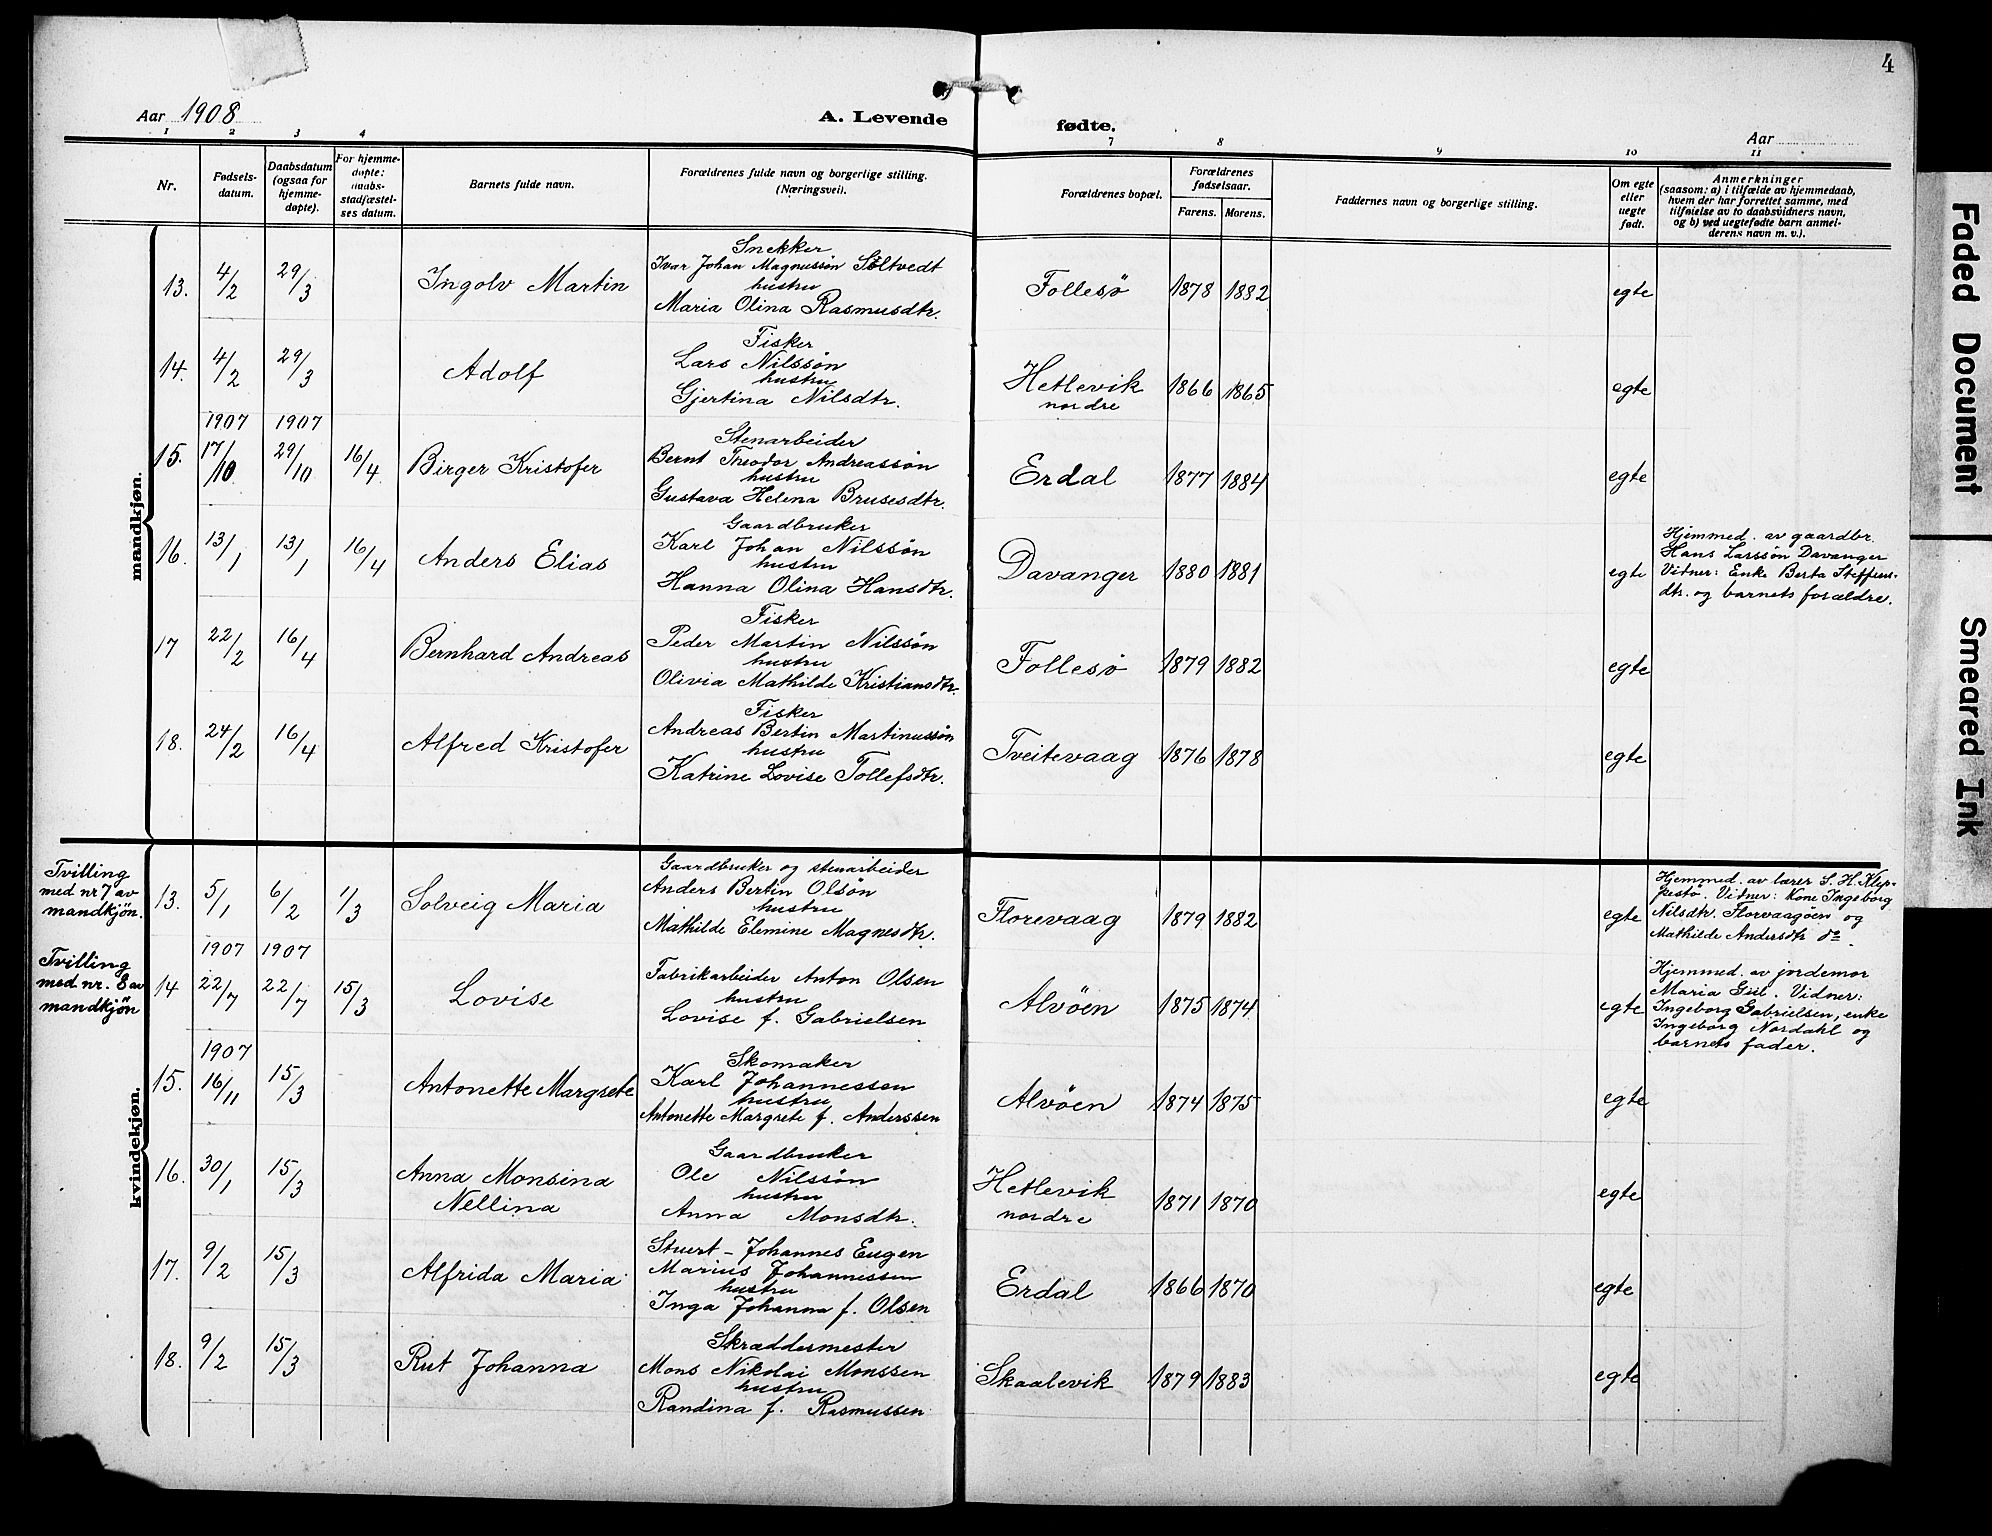 4
Aar 1908
A. Levende fødte.
Aar
1 2 3 4 7 8 9 10 11
Nr.
Fødsels-
datum.
Daabsdatum
(ogsaa for
hjemme-
døpte).
For hjemme-
døpte:
daabs-
stadfæstel-
ses datum.
Barnets fulde navn.
Forældrenes fulde navn og borgerlige stilling.
(Næringsvei).
Forældrenes bopæl.
Forældrenes
fødselsaar.
Farens. Morens.
Faddernes navn og borgerlige stilling.
Om egte
eller
uegte
født.
Anmerkninger
(saasom: a) i tilfælde av hjemmedaab,
hvem der har forrettet samme, med
tilføielse av to daabsvidners navn,
og b) ved uegtefødte barn anmel-
derens navn m. v.).
mandkjøn.
Snekker
Ivar Johan Magnussøn Søltvedt
13. 4/2 29/3 Ingolv Martin hustru Follesø 1878 1882 egte
Maria Olina Rasmusdtr.
Fisker
Lars Nilssøn
14. 4/2 29/3 Adolf hustru Hetlevik 1866 1865 egte
Gjertina Nilsdtr. nordre
1907 1907
Stenarbeider
Bernt Theodor Andreassøn
15. 17/10 29/10 16/4 Birger Kristofer hustru Erdal 1877 1884 egte
Gustava Helena Brusesdtr.
Gaardbruker
Karl Johan Nilssøn
16. 13/1 13/1 16/4 Anders Elias hustru Davanger 1880 1881 egte
Hanna Olina Hansdtr.
Hjemmed. av gaardbr.
Hans Larssøn Davanger
Vitner: Enke Berta Steffens-
dtr. og barnets forældre.
Fisker
Peder Martin Nilssøn
17 22/2 16/4 Bernhard Andreas hustru Follesø 1879 1882 egte
Olivia Mathilde Kristiansdtr.
Fisker
Andreas Bertin Martinussøn
18. 24/2 16/4 Alfred Kristofer hustru Tveitevaag 1876 1878 egte
Katrine Lovise Tollefsdtr.
kvindekjøn.
Tvilling
med nr 7 av
mandkjøn.
Gaardbruker og stenarbeider
Anders Bertin Olsøn
13. 5/1 6/2 1/3 Solveig Maria hustru Florevaag 1879 1882 egte
Mathilde Elemine Magnesdtr.
Hjemmed. av lærer S. H. Klep-
pestø. Vitner: Kone Ingeborg
Nilsdtr. Florvaagøen og
Mathilde Andersdtr do.
Tvilling
med nr. 8 av
mandkjøn
1907 1907
Fabrikarbeider Anton Olsen
14 22/7 22/7 15/3 Lovise hustru Alvøen 1875 1874 egte
Lovise f. Gabrielsen
Hjemmed. av jordemor
Maria Giil. Vidner:
Ingeborg Gabrielsen, enke
Ingeborg Nordahl og
barnets fader.
1907
Skomaker
Karl Johannessen
15. 16/11 15/3 Antonette Margrete hustru Alvøen 1874 1875 egte
Antonette Margrete f. Anderssen
Gaardbruker
Ole Nilssøn
16. 30/1 15/3 Anna Monsina hustru Hetlevik 1871 1870 egte
Nellina Anna Monsdtr. nordre
Stuert - Johannes Eugen
Marius Johannessen
17. 9/2 15/3 Alfrida Maria hustru Erdal 1866 1870 egte
Inga Johanna f. Olsen
Skræddermester
Mons Nikolai Monssen
18. 9/2 15/3 Rut Johanna hustru Skaalevik 1879 1883 egte
Randina f. Rasmussen
Faded Document
Smeared Ink